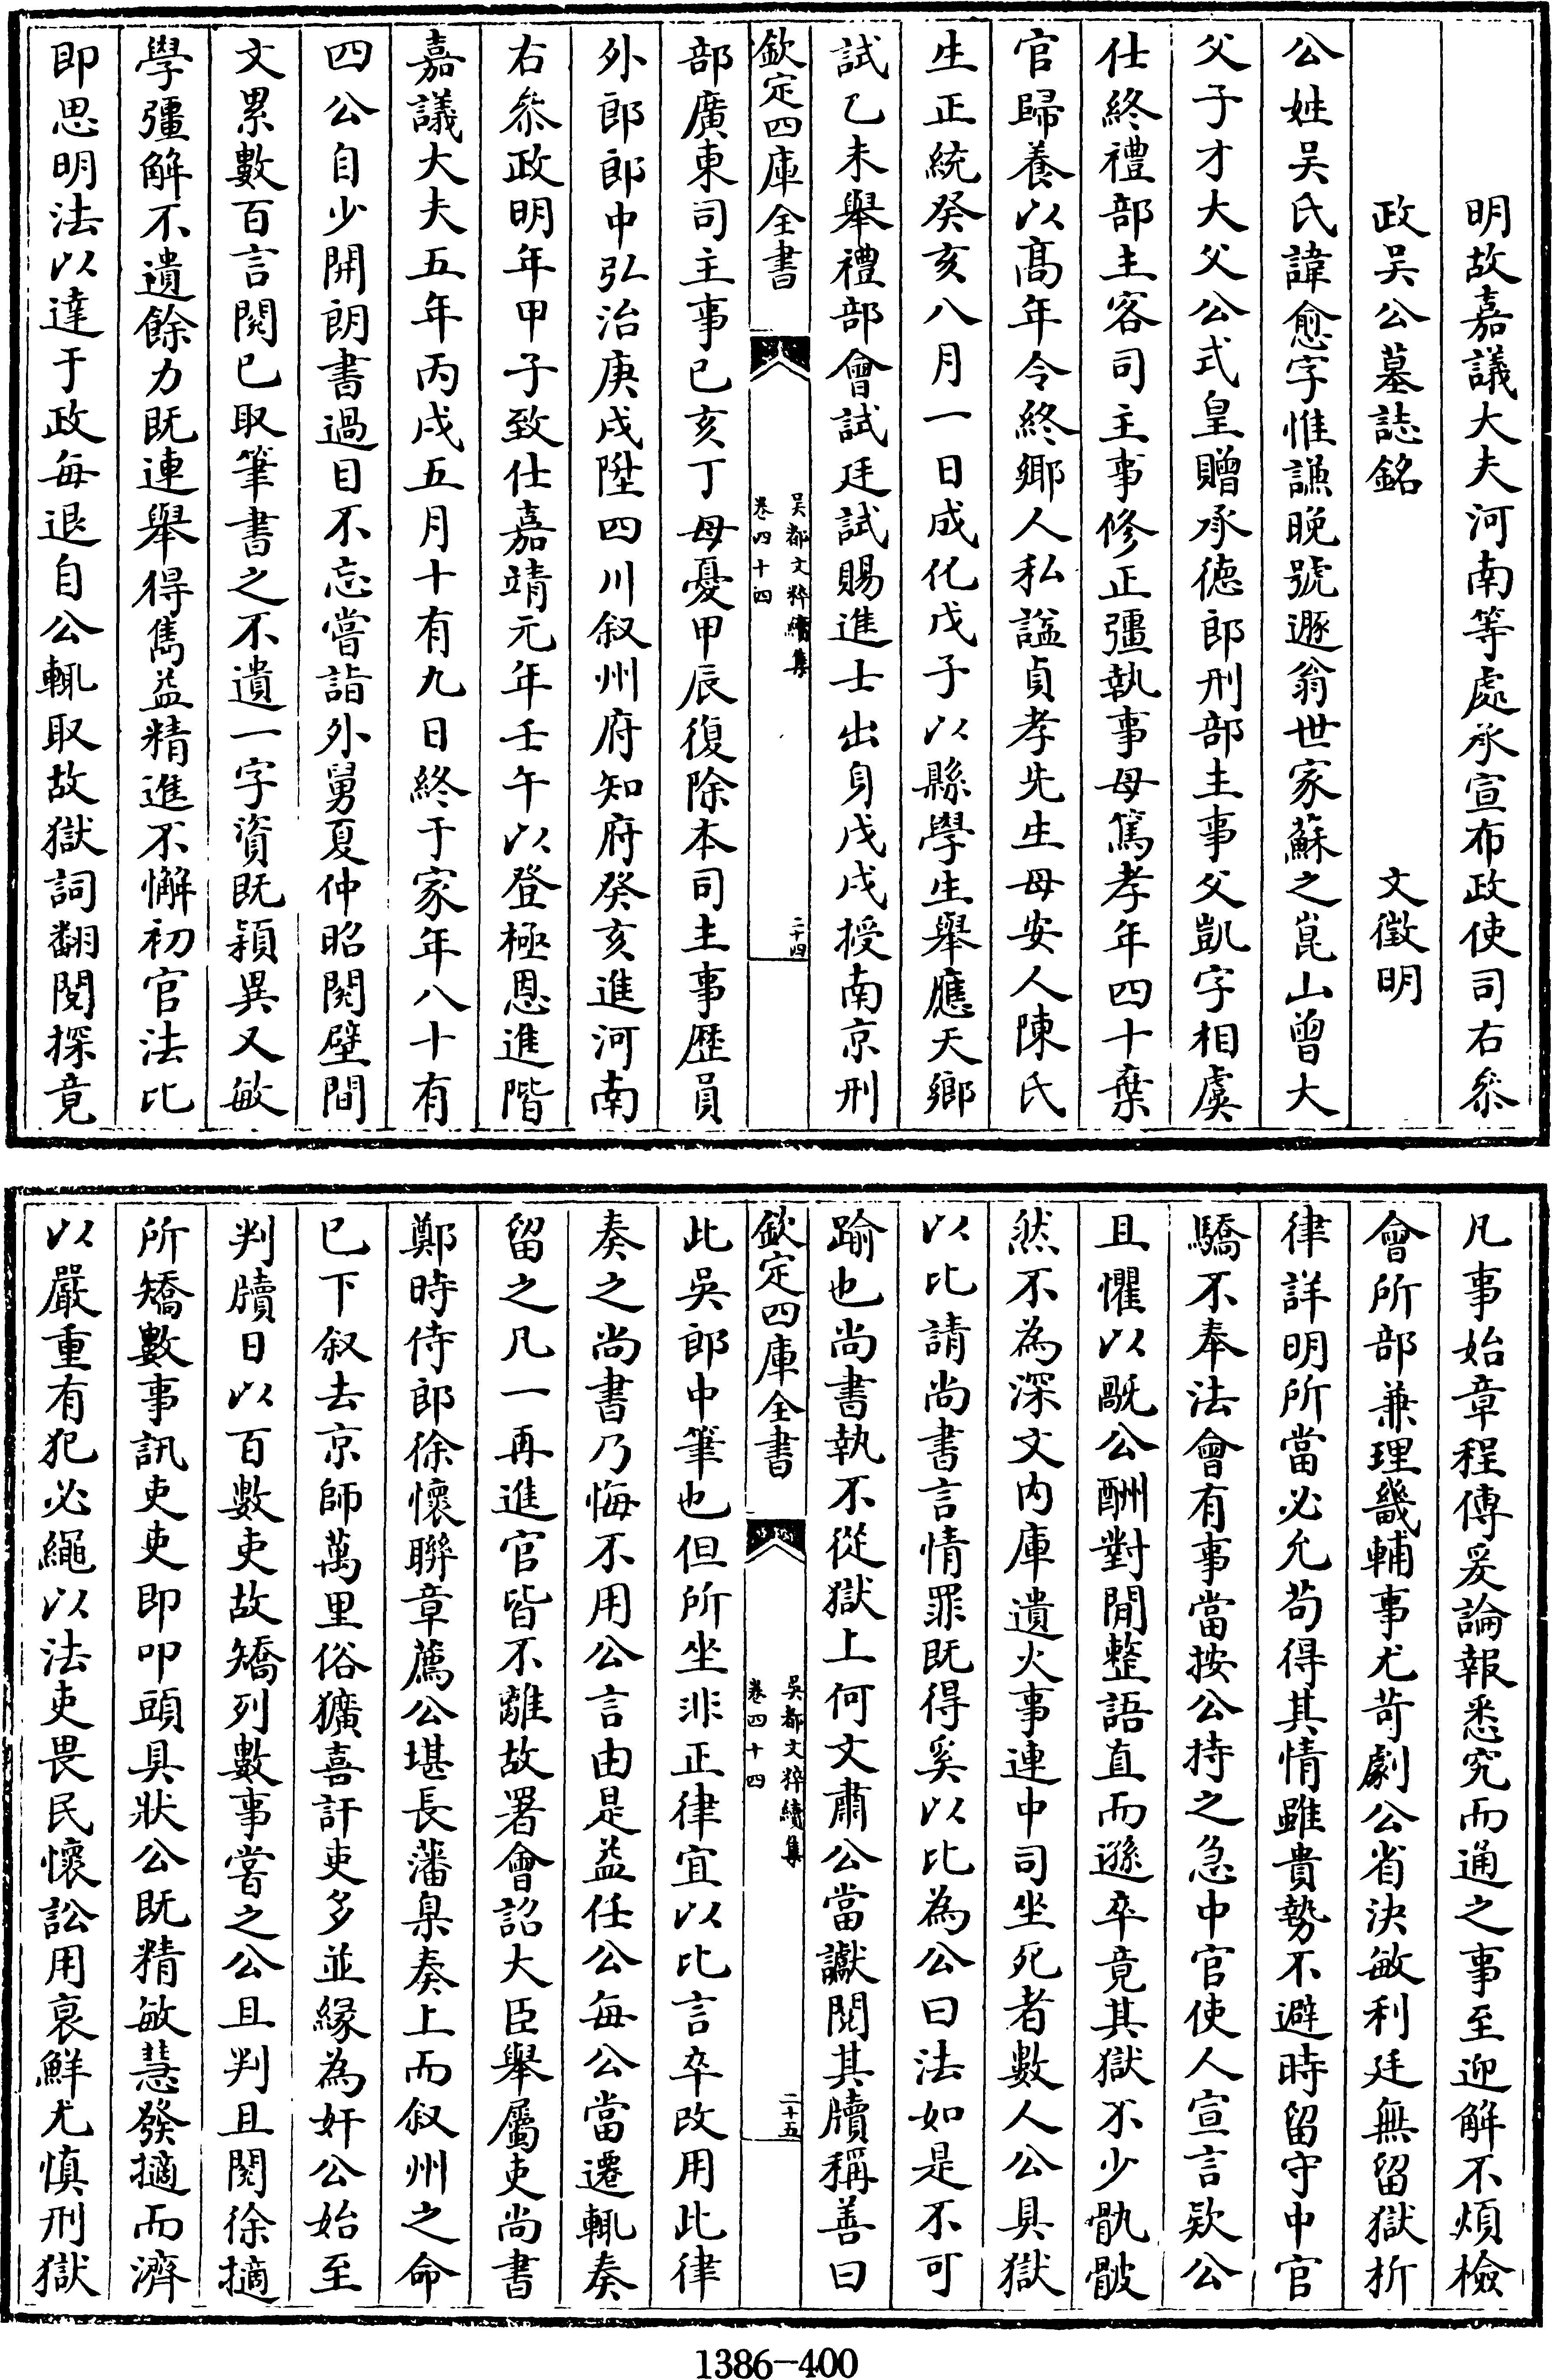 明故嘉議大夫河南等處承宣布政使司右叅
政吴公墓誌銘　文徵明
公姓吴氏諱愈字惟謙晚號遯翁世家蘇之崑山曾大
父子才大父公式皇贈承德郎刑部主事父凱字相虞
仕終禮部主客司主事修正彊執事母篤孝年四十棄
官歸養以髙年令終鄉人私諡貞孝先生母安人陳氏
生正統癸亥八月一日成化戊子以縣學生舉應天鄉
試乙未舉禮部會試廷試賜進士出身戊戌授南京刑
欽定四庫全書
吴都文粹續集
卷四十四
二十四
部廣東司主事已亥丁母憂甲辰復除本司主事歴員
外郎郎中弘治庚戌陞四川叙州府知府癸亥進河南
右叅政明年甲子致仕嘉靖元年壬午以登極恩進階
嘉議大夫五年丙戌五月十有九日終于家年八十有
四公自少開朗書過目不忘嘗詣外舅夏仲昭閲壁間
文累數百言閲已取筆書之不遺一字資既穎異又敏
學彊解不遺餘力既連舉得雋益精進不懈初官法比
即思明法以達于政每退自公輒取故獄詞翻閲探竟
凡事始章程傅爰論報悉究而通之事至迎解不煩檢
會所部兼理畿輔事尤苛劇公省決敏利廷無留獄析
律詳明所當必允苟得其情雖貴勢不避時留守中官
驕不奉法會有事當按公持之急中官使人宣言欵公
且懼以勢公酬對閒整語直而遜卒竟其獄不少骩骳
然不為深文内庫遺火事連中司坐死者數人公具獄
以比請尚書言情罪既得奚以比為公曰法如是不可
踰也尚書執不從獄上何文肅公當讞閲其牘稱善曰
欽定四庫全書
吳都文粹續集
卷四十四
二十五
此吳郎中筆也但所坐非正律宜以比言卒改用此律
奏之尚書乃悔不用公言由是益任公每公當遷輒奏
留之凡一再進官皆不離故署會詔大臣舉屬吏尚書
鄭時侍郎徐懷聯章薦公堪長藩臬奏上而叙州之命
已下叙去京師萬里俗獷喜訐吏多並緣為奸公始至
判牘日以百數吏故矯列數事嘗之公且判且閲徐擿
所矯數事訊吏吏即叩頭具狀公既精敏慧發擿而濟
以嚴重有犯必繩以法吏畏民懷訟用衰鮮尤慎刑獄
1386-400